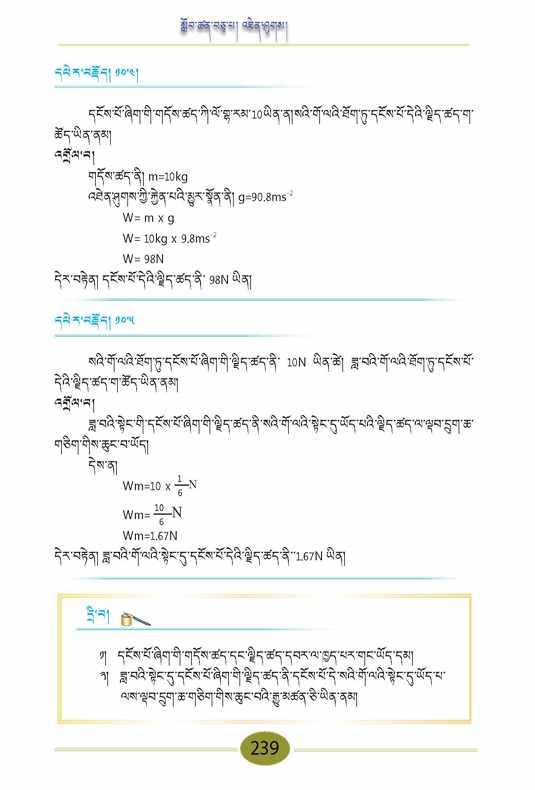 སློབ་ཚན་བཅུ་པ། འཐེན་ཤུགས།
དཔེར་བརྗོད། ༡༠.༤།
དངོས་པོ་ཞིག་གི་གདོས་ཚད་ཀི་ལོ་གྷ་རམ་10ཡིན་ན།སའི་གོ་ལའི་ཐོག་ཏུ་དངོས་པོ་དེའི་ལྗིད་ཚད་ག་
ཚོད་ཡིན་ནམ།
འགྲོལ་བ།
གདོས་ཚད་ནི། m=10kg
འཐེན་ཤུགས་ཀྱི་རྐྱེན་པའི་མྱུར་སྣོན་ནི། g=90.8ms⁻²
W= m x g
W= 10kg x 9.8ms⁻²
W= 98N
དེར་བརྟེན། དངོས་པོ་དེའི་ལྗིད་ཚད་ནི་ 98N ཡིན།
དཔེར་བརྗོད། ༡༠.༥
སའི་གོ་ལའི་ཐོག་ཏུ་དངོས་པོ་ཞིག་གི་ལྗིད་ཚད་ནི་ 10N ཡིན་ཚེ། ཟླ་བའི་གོ་ལའི་ཐོག་ཏུ་དངོས་པོ་
དེའི་ལྗིད་ཚད་ག་ཚོད་ཡིན་ནམ།
འགྲོལ་བ།
ཟླ་བའི་སྟེང་གི་དངོས་པོ་ཞིག་གི་ལྗིད་ཚད་ནི་སའི་གོ་ལའི་སྟེང་དུ་ཡོད་པའི་ལྗིད་ཚད་ལ་ལྡབ་དྲུག་ཆ་
གཅིག་གིས་ཆུང་བ་ཡོད།
དེས་ན།
Wm=10 x 1/6 N
Wm= 10/6 N
Wm=1.67N
དེར་བརྟེན། ཟླ་བའི་གོ་ལའི་སྟེང་དུ་དངོས་པོ་དེའི་ལྗིད་ཚད་ནི་་1.67N ཡིན།
དྲི་བ།
༡། དངོས་པོ་ཞིག་གི་གདོས་ཚད་དང་ལྗིད་ཚད་དབར་ལ་ཁྱད་པར་གང་ཡོད་དམ།
༢། ཟླ་བའི་སྟེང་དུ་དངོས་པོ་ཞིག་གི་ལྗིད་ཚད་ནི་དངོས་པོ་དེ་སའི་གོ་ལའི་སྟེང་དུ་ཡོད་པ་
ལས་ལྡབ་དྲུག་ཆ་གཅིག་གིས་ཆུང་བའི་རྒྱུ་མཚན་ཅི་ཡིན་ནམ།
239